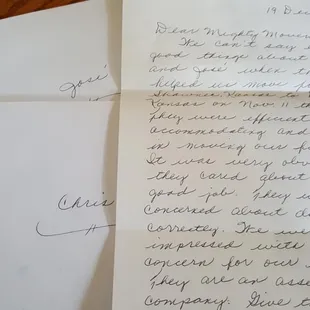 José
Chris
19 De
Dear Mighty Move
We can't say
good things about
and José when th
helped us move
Kansas on Nov. 11 t
They were efficient
accommodating and
in moving our
It was very obv
they cared about
good job. They w
concerned about
correctly. We we
impressed with
concern for our
They are an asse
company. Give t